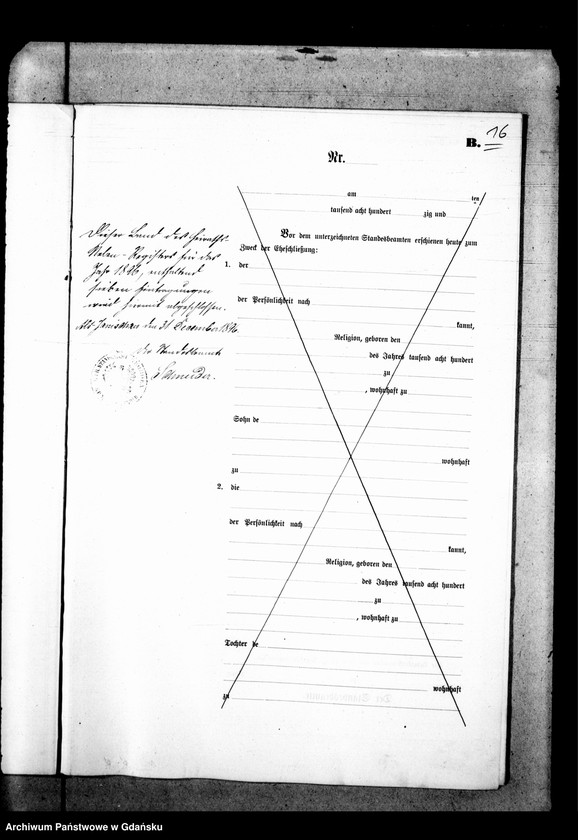 B.
16
Nr.
am ten
tausend acht hundert zig und
Vor dem unterzeichneten Standesbeamten erschienen heute zum
Zweck der Eheschließung:
1. der
der Persönlichkeit nach
kannt,
Religion, geboren den
des Jahres tausend acht hundert
zu
, wohnhaft zu
Sohn de
wohnhaft
zu
2. die
der Persönlichkeit nach
kannt,
Religion, geboren den
des Jahres tausend acht hundert
zu
, wohnhaft zu
Tochter de
wohnhaft
zu
Dieser Band des Heiraths-
Neben-Registers für das
Jahr 1886, enthaltend
sieben Eintragungen
wird hiermit abgeschlossen.
den 31 Dezember
Der Standesbeamte
Archiwum Państwowe w Gdańsku